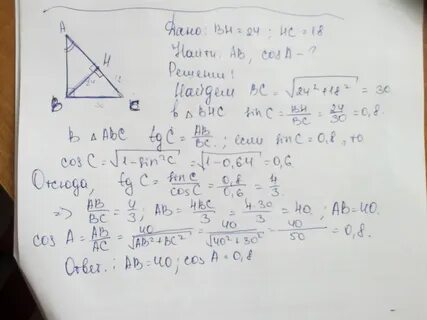 A
H
24
18
B
30
C
Дано: BH = 24; HC = 18
Найти: AB, cosA - ?
Решение:
Найдем BC = √24²+18² = 30.
в △ BHC sinC = BH/BC = 24/30 = 0,8.
В △ ABC tgC = AB/BC; если sinC = 0,8, то
cosC = √1-sin²C = √1-0,64 = 0,6.
Отсюда, tgC = sinC/cosC = 0,8/0,6 = 4/3.
=> AB/BC = 4/3; AB = 4BC/3 = 4·30/3 = 40; AB = 40.
cosA = AB/AC = 40/√AB²+BC² = 40/√40²+30² = 40/50 = 0,8.
Ответ: AB = 40; cosA = 0,8